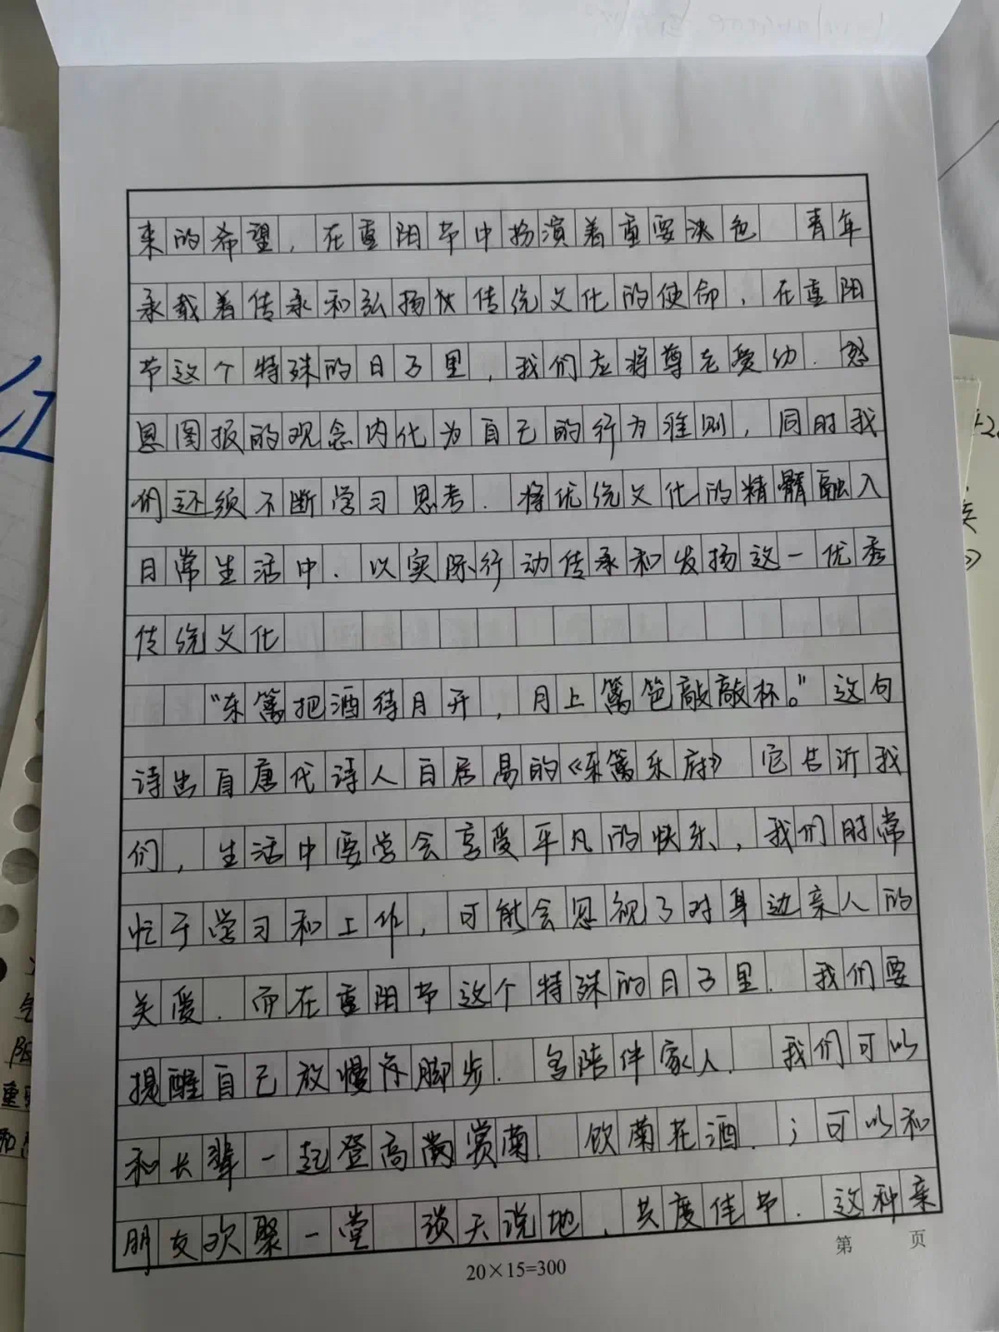 来的希望，在重阳节中扮演着重要决色 青年
承载着传承和弘扬优传统文化的使命，在重阳
节这个特殊的日子里，我们应将尊老爱幼．感
恩图报的观念内化为自己的行为准则，同时我
们还须不断学习 思考．将优统文化的精髓融入
日常生活中．以实际行动传承和发扬这一优秀
传统文化
“东篱把酒待月开，月上篱笆敲敲杯。”这句
诗出自唐代诗人白居易的《东篱乐府》 它告诉我
们，生活中要学会享受平凡的快乐，我们时常
忙于学习和工作，可能会忽视了对身边亲人的
关爱．而在重阳节这个特殊的日子里．我们要
提醒自己放慢 脚步．多陪伴家人．我们可以
和长辈一起登高 赏菊．饮菊花酒．；可以和
朋友欢聚一堂 谈天说地，共度佳节．这种亲
第 页
20×15=300